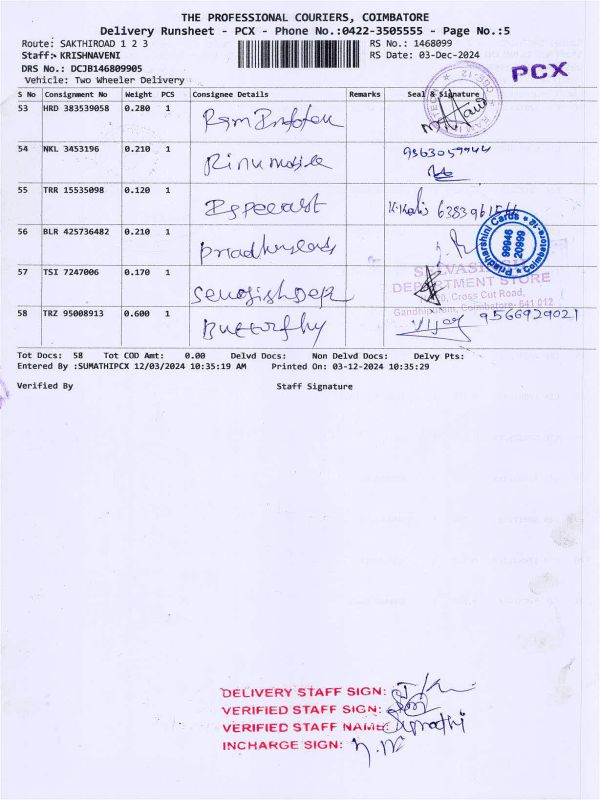 THE PROFESSIONAL COURIERS, COIMBATORE
Delivery Runsheet - PCX - Phone No.:0422-3505555 - Page No.:5
Route: SAKTHIROAD 1 2 3 RS No.: 1468099
Staff:- KRISHNAVENI RS Date: 03-Dec-2024
DRS No.: DCJB146809905
Vehicle: Two Wheeler Delivery
PCX
S No Consignment No Weight PCS Consignee Details Remarks Seal & Signature
53 HRD 383539058 0.280 1
54 NKL 3453196 0.210 1 Rinu mobile
55 TRR 15535098 0.120 1
56 BLR 425736482 0.210 1
Priyadharshini Cards
99946 20999
Coimbatore-12
57 TSI 7247006 0.170 1
DEPARTMENT STORE
Cross Cut Road,
Gandhipuram, Coimbatore- 641 012
58 TRZ 95008913 0.600 1 Butterfly Vijay 9566929021
Tot Docs: 58 Tot COD Amt: 0.00 Delvd Docs: Non Delvd Docs: Delvy Pts:
Entered By :SUMATHIPCX 12/03/2024 10:35:19 AM Printed On: 03-12-2024 10:35:29
Verified By Staff Signature
DELIVERY STAFF SIGN:
VERIFIED STAFF SIGN:
VERIFIED STAFF NAME:
INCHARGE SIGN: